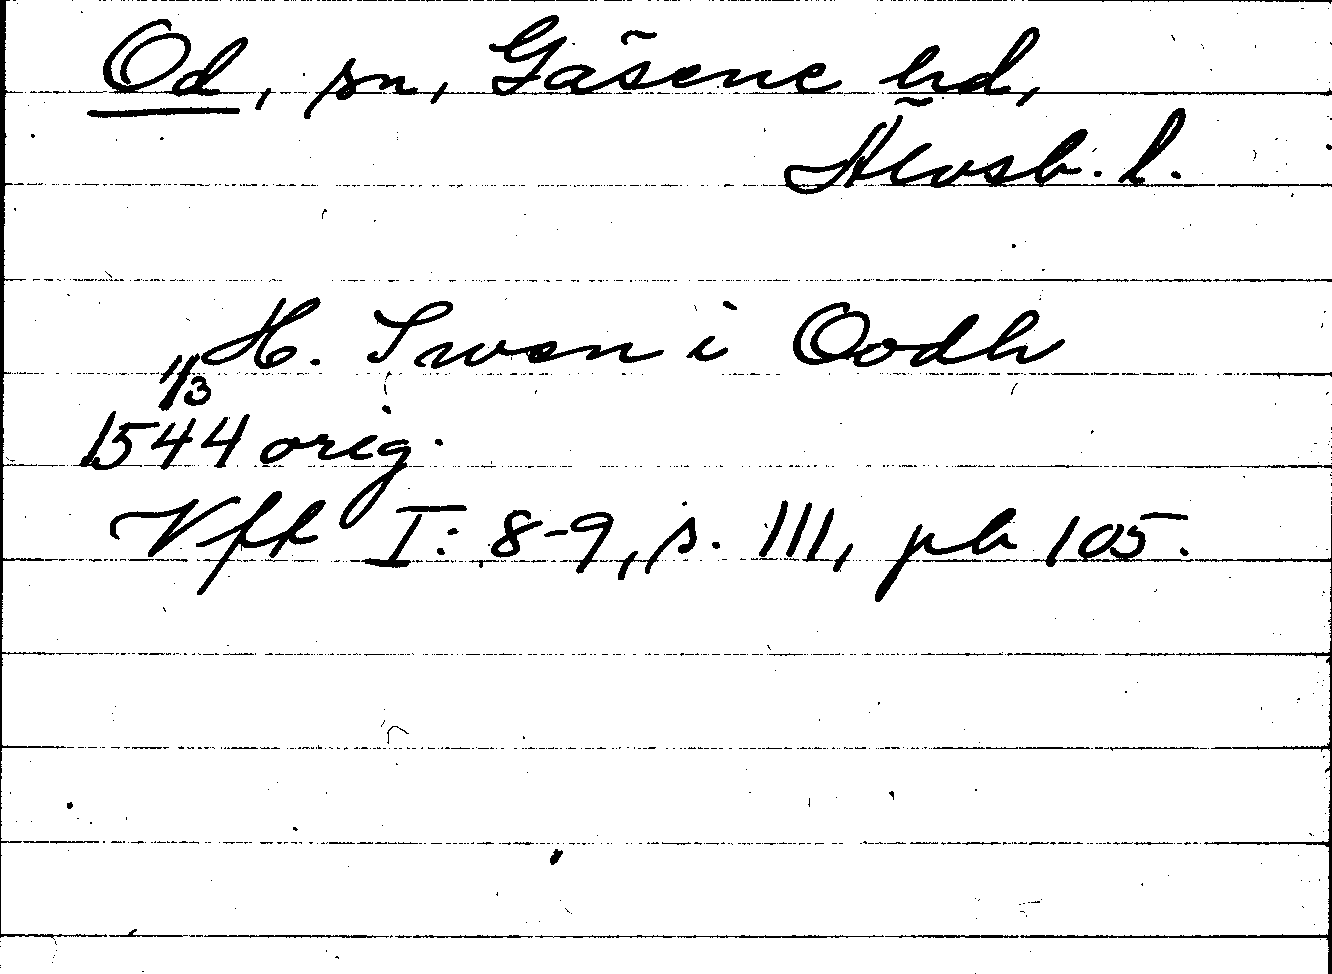 Od, sn, Gäsene hd,
Älvsb. l.
H. Swen i Oodh
11/3
1544 orig.
Vff I: 8-9, s. 111, pb 105.